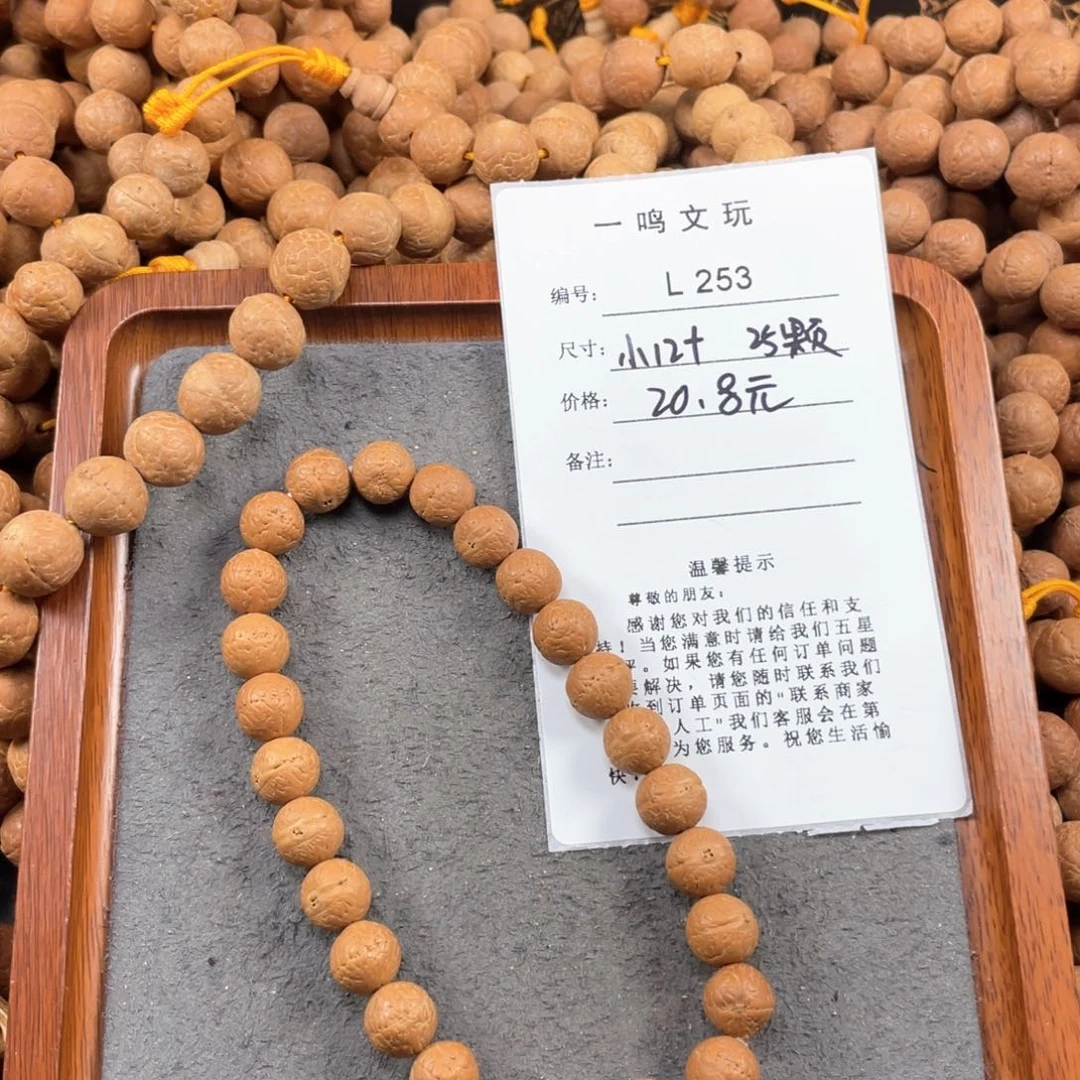 一鸣文玩
编号: L253
尺寸: 小12+ 25颗
价格: 20.8元
备注:
温馨提示
尊敬的朋友:
感谢您对我们的信任和支
持!当您满意时请给我们五星
。如果您有任何订单问题
解决,请您随时联系我们
到订单页面的"联系商家
人工"我们客服会在第
为您服务。祝您生活愉
快!